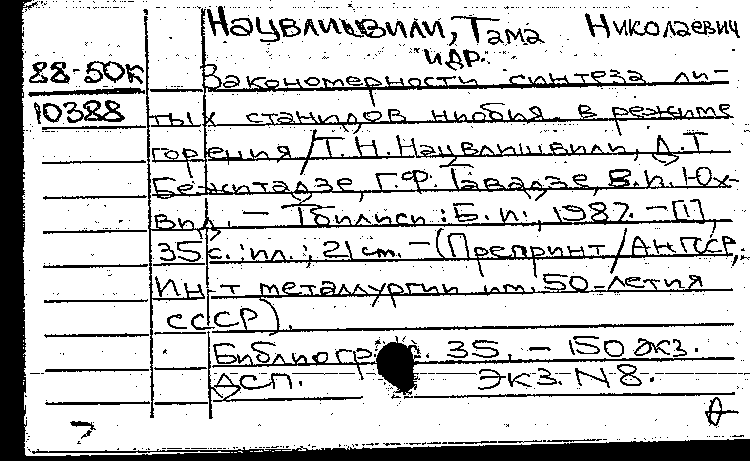 Нацвлишвили, Тама Николаевич
и др.
88-50к Закономерности синтеза ли-
10388 тых станидов ниобия в режиме
горения / Т. Н. Нацвлишвили, Д. Т.
Бежитадзе, Г. Ф. Тавадзе, В. И. Юх-
вид. – Тбилиси : Б. и., 1987. – [1],
35 с. : ил. ; 21 см. – (Препринт / АН ГССР,
Ин-т металлургии им. 50-летия
СССР).
Библиогр. 35. – 150 экз.
ДСП. Экз. N 8.